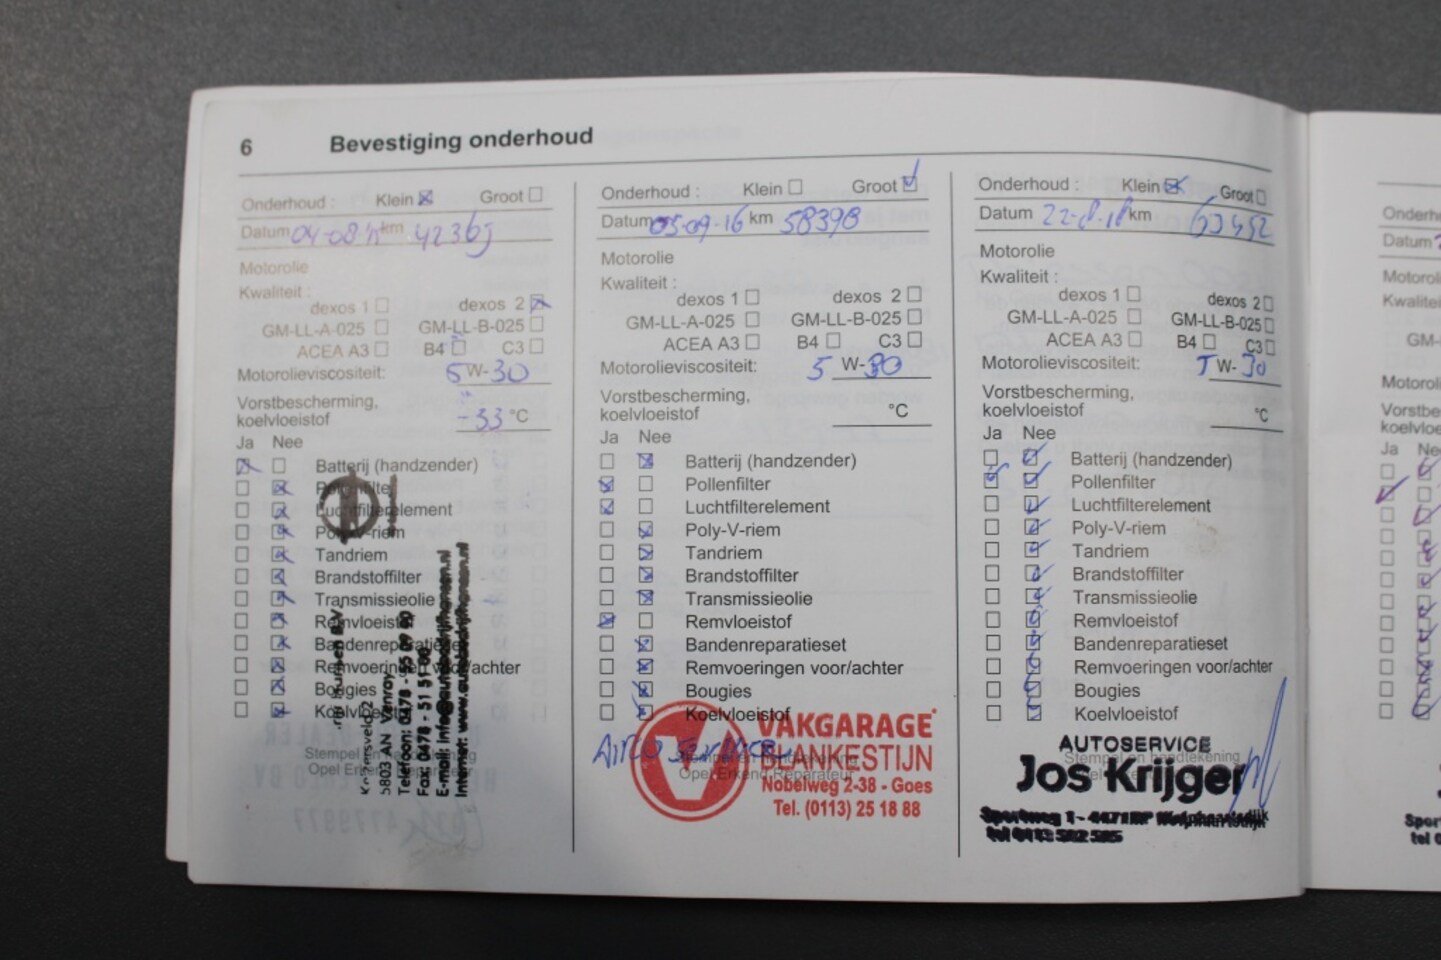 6 Bevestiging onderhoud
Onderhoud : Klein Groot
Datum km 42369
Motorolie
Kwaliteit :
dexos 1 dexos 2
GM-LL-A-025 GM-LL-B-025
ACEA A3 B4 C3
Motorolieviscositeit: 5 W-30
Vorstbescherming,
koelvloeistof -33 °C
Ja Nee
Batterij (handzender)
Pollenfilter
Luchtfilterelement
Poly-V-riem
Tandriem
Brandstoffilter
Transmissieolie
Remvloeistof
Bandenreparatieset
Remvoeringen voor/achter
Bougies
Koelvloeistof
Stempel en handtekening
Opel Erkend Reparateur
5803 AN Venray
Telefoon: 0478 - 55 09 90
Fax: 0478 - 51 51 00
E-mail: info@autobedrijfhansen.nl
Internet: www.autobedrijfhansen.nl
Onderhoud : Klein Groot
Datum 05-09-16 km 58398
Motorolie
Kwaliteit :
dexos 1 dexos 2
GM-LL-A-025 GM-LL-B-025
ACEA A3 B4 C3
Motorolieviscositeit: 5 W-30
Vorstbescherming,
koelvloeistof °C
Ja Nee
Batterij (handzender)
Pollenfilter
Luchtfilterelement
Poly-V-riem
Tandriem
Brandstoffilter
Transmissieolie
Remvloeistof
Bandenreparatieset
Remvoeringen voor/achter
Bougies
Koelvloeistof
Airco Service
Stempel en handtekening
Opel Erkend Reparateur
VAKGARAGE
BLANKESTIJN
Nobelweg 2-38 - Goes
Tel. (0113) 25 18 88
Onderhoud : Klein Groot
Datum 22-8-18 km 63452
Motorolie
Kwaliteit :
dexos 1 dexos 2
GM-LL-A-025 GM-LL-B-025
ACEA A3 B4 C3
Motorolieviscositeit: 5 W-30
Vorstbescherming,
koelvloeistof °C
Ja Nee
Batterij (handzender)
Pollenfilter
Luchtfilterelement
Poly-V-riem
Tandriem
Brandstoffilter
Transmissieolie
Remvloeistof
Bandenreparatieset
Remvoeringen voor/achter
Bougies
Koelvloeistof
Stempel en handtekening
AUTOSERVICE
Jos Krijger
Sportweg 1 - 4471RP Wolphaartsdijk
tel 0113 582 585
Onderh
Datum
Motoroli
Kwalitei
GM-
Motoroli
Vorstbe
koelvloe
Ja Ne
Spor
tel 0